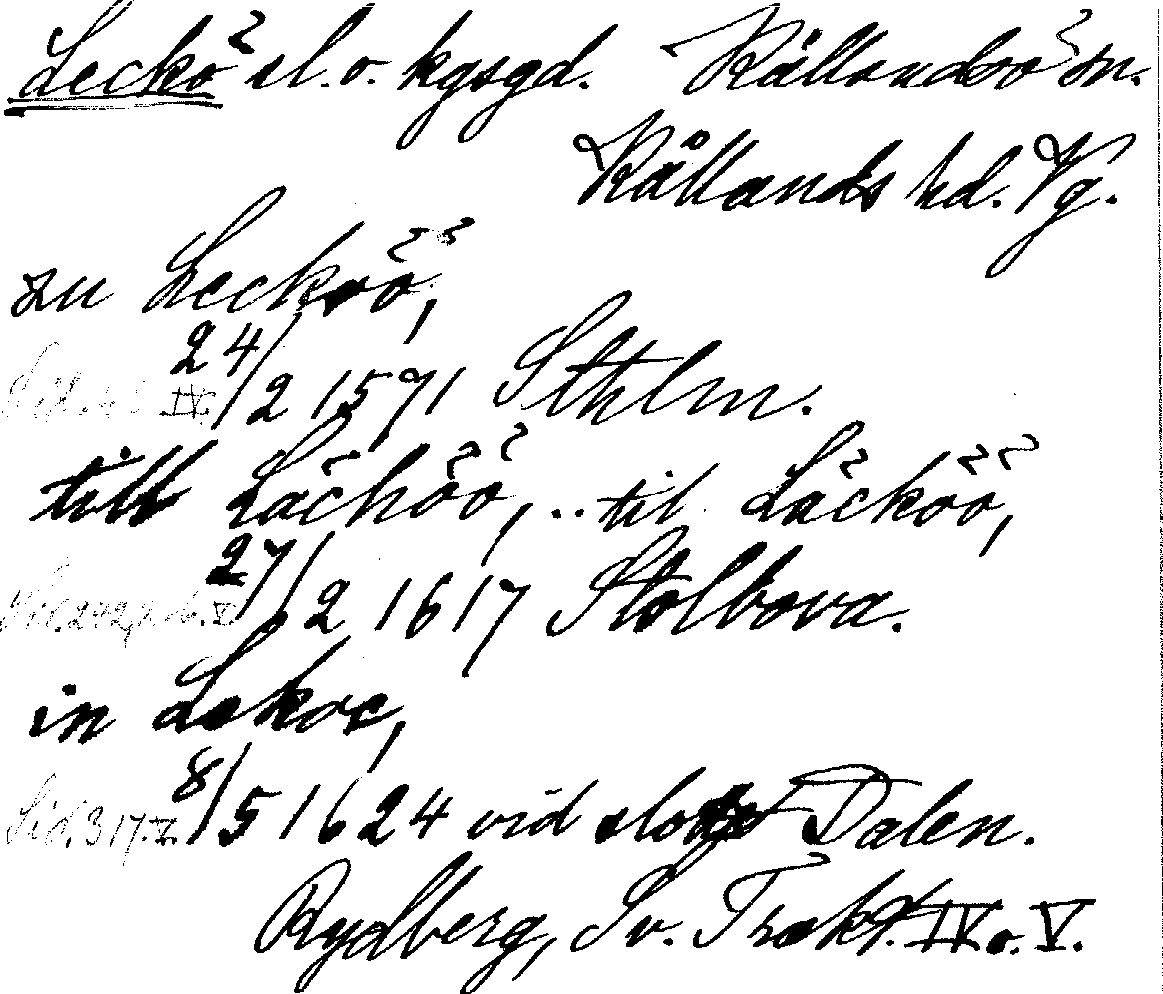 Leckö sl. o. kgsgd. Kållandsö sn.
Kållands hd. Vg.
zu Lecköö,
24/2 1571 Sthlm.
till Lächöö, .. til Läcköö,
27/2 1617 Stolbova.
in Lekoe,
Sid. 317. V. 8/5 1624 vid slotet Dalen.
Rydberg, Sv. Trakt. IV o. V.